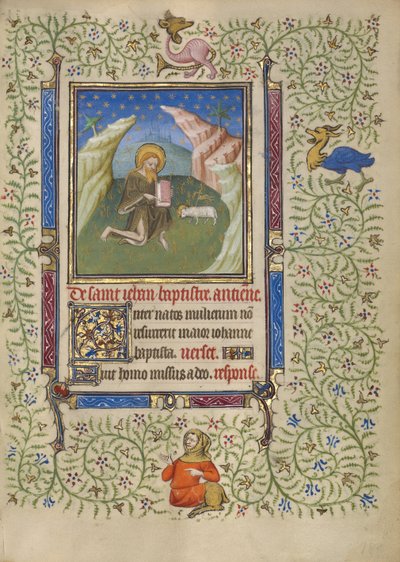 De saint iehan baptistre. antiene.
Inter natos mulierum nō
surrexit maior iohanne
baptista. verset.
Fuit homo missus a deo. response.